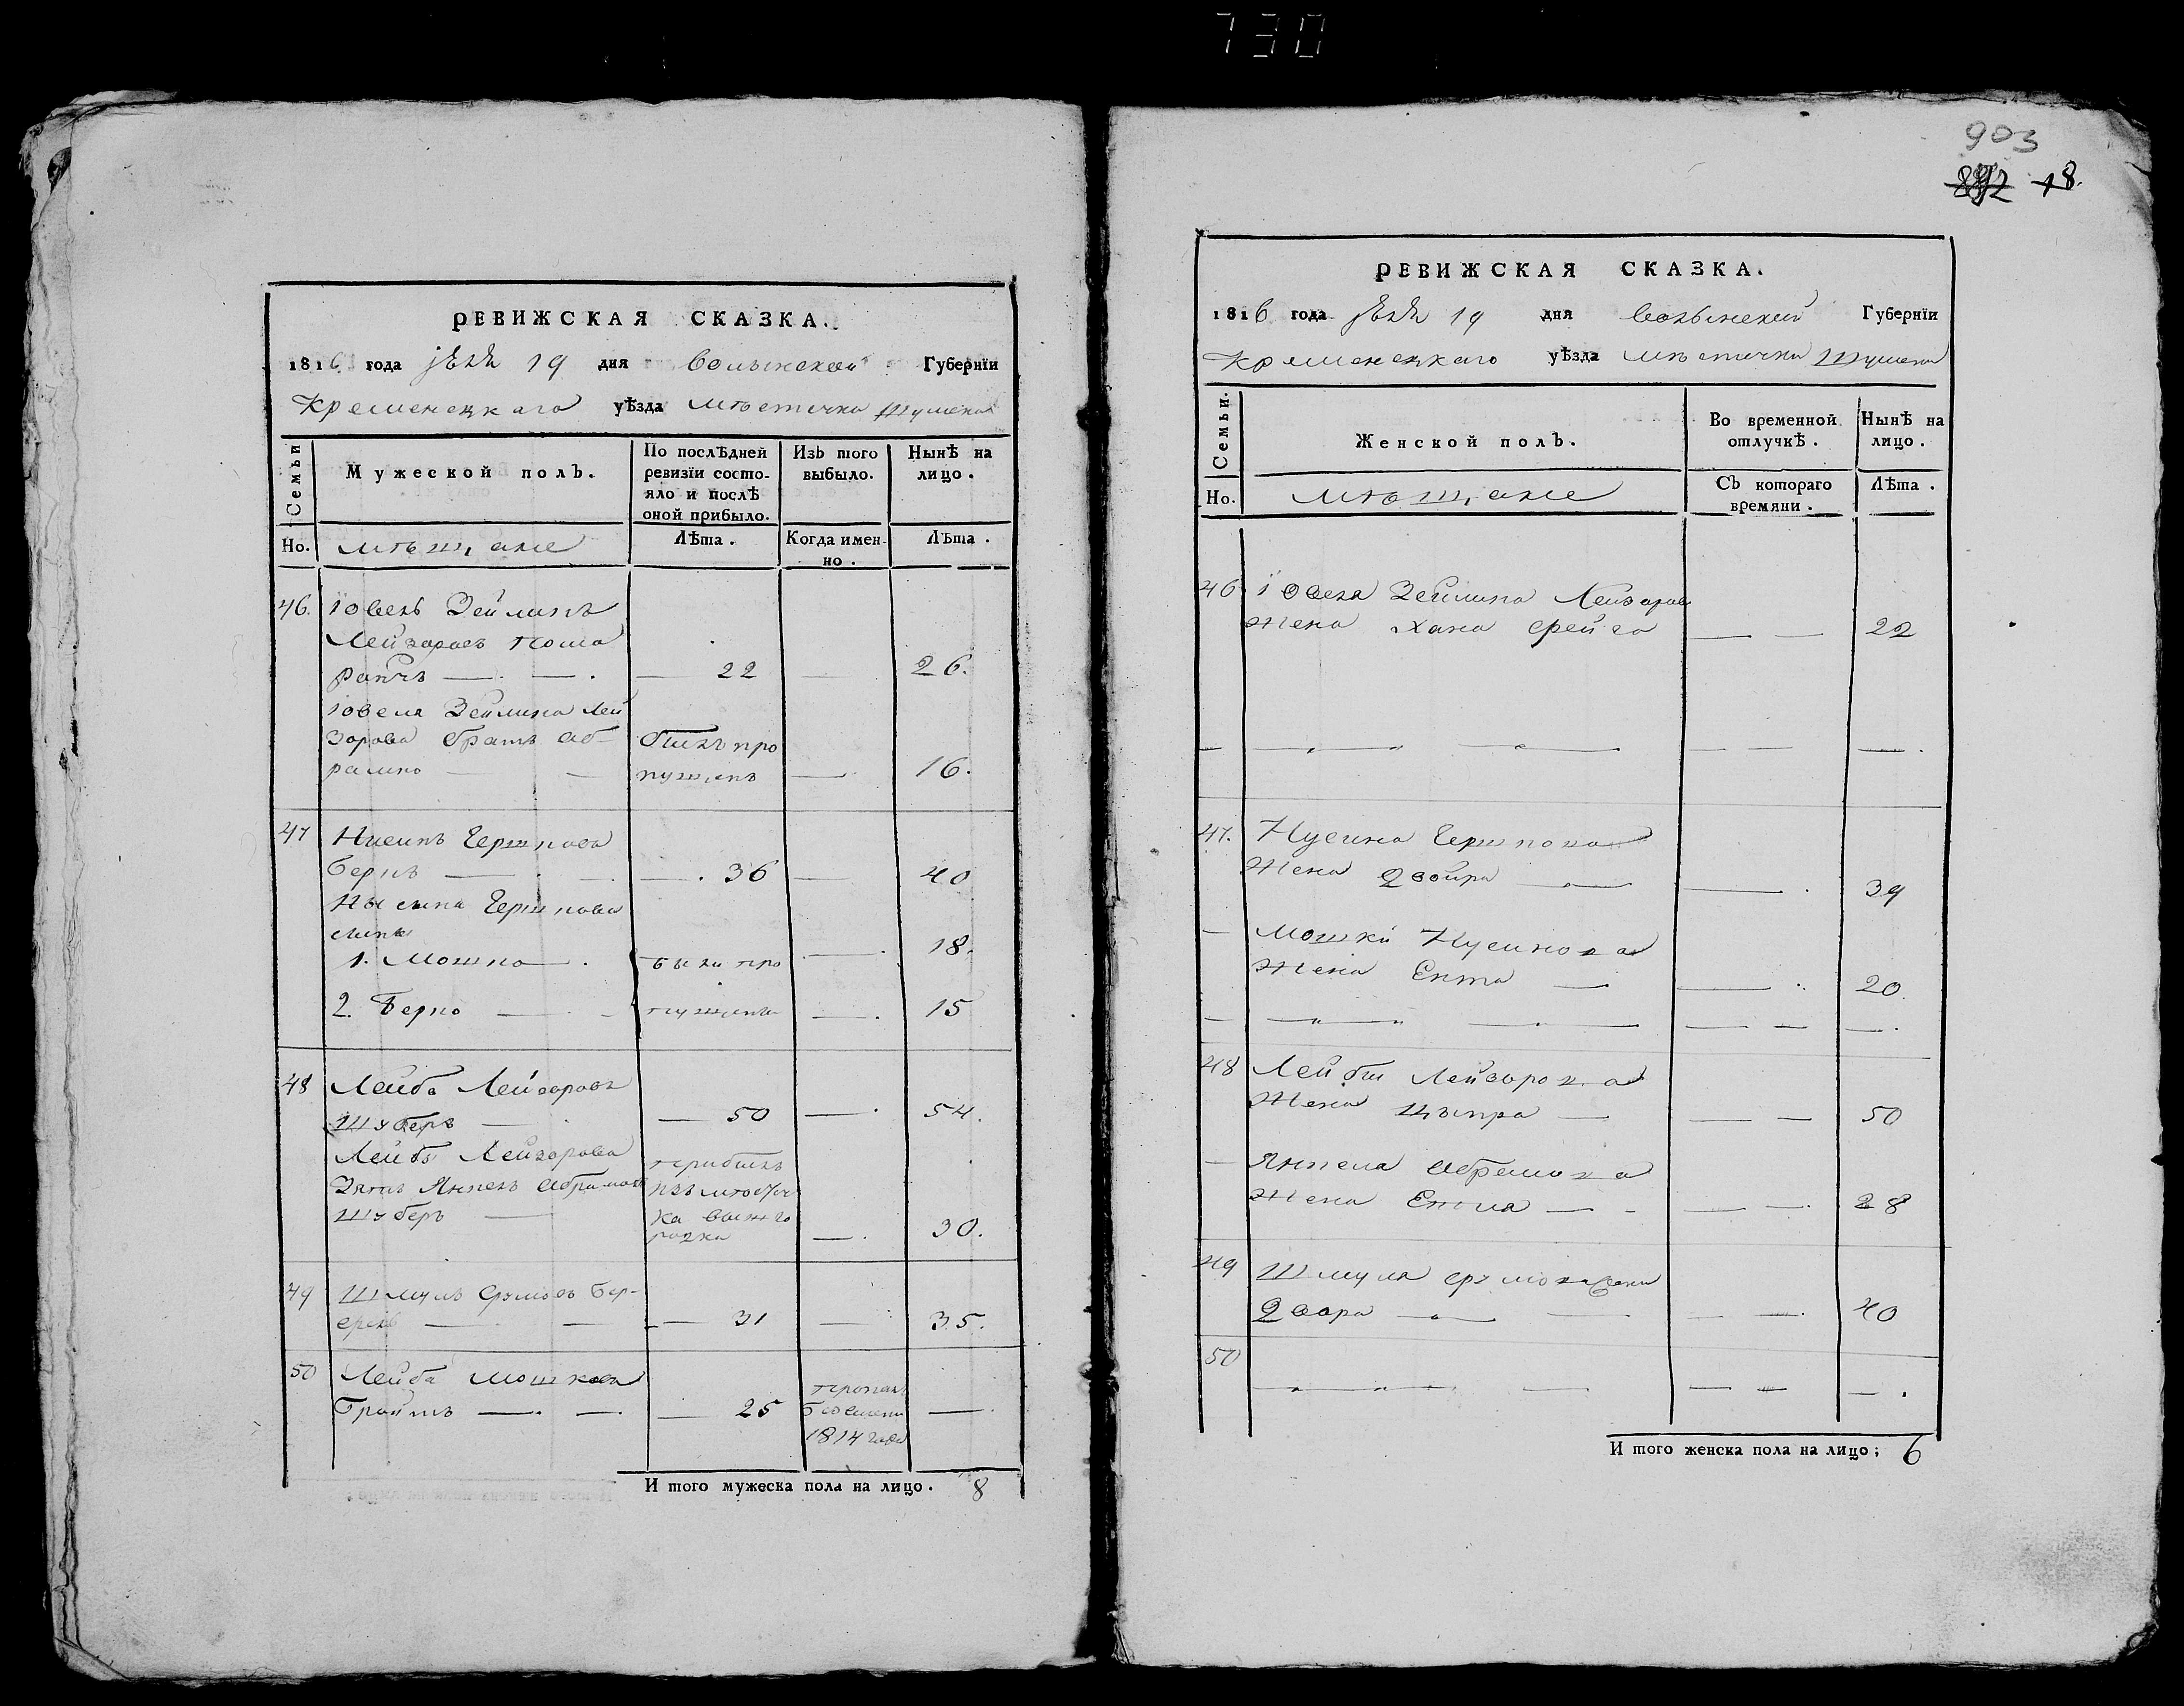 730
РЕВИЖСКАЯ СКАЗКА.
1816 года 19 дня Волынской Губернїи
Кременецкаго уѣзда мѣстечка Шумска
Семьи
Мужеской полъ.
По послѣдней ревизїи состо-
яло и послѣ
оной прибыло.
Изъ того
выбыло.
Нынѣ на
лицо.
Но. мѣщане
Лѣта.
Когда имен-
но.
Лѣта.
46. Іовель Зейлинъ
Лейзоровъ
22 26.
Іовеля Зейлина Лей
зорова братъ Аб-
рамко
былъ про
пущенъ 16.
47 Нусинъ Гершковъ
Бернъ 36 40
Нысина Гершкова
сыны
1. Мошко были про 18.
2. Берко пущены 15
48 Лейба Лейзоровъ
Шуберъ 50 54.
Лейбы Лейзорова
Зять Янкель Абрамовъ
Шуберъ
прибылъ
изъ мѣстеч
ка Вышго
родка 30.
49 Шмуль Сруловъ Бер-
31 35.
50 Лейба Мошковъ
Брайтъ 25
пропалъ
безвести
1814 года
И того мужеска пола на лицо. 8
903
18.
РЕВИЖСКАЯ СКАЗКА.
1816 года 19 дня Волынской Губернїи
Кременецкаго уѣзда мѣстечка Шумска
Семьи.
Женской полъ.
Во временной
отлучкѣ.
Нынѣ на
лицо.
Но. мѣщане
Съ котораго
времяни.
Лѣта.
46 Іовеля Зейлина Лейзорова
жена Хана Фрейга 22
47. Нусина Гершкова
жена Двойра 39
Мошки Нусинова
жена Ента 20.
48 Лейбы Лейзорова
жена Цыпра 50
Янкеля Абрамова
жена 28
49 Шмуля Срулова жена
Двора 40
50
И того женска пола на лицо; 6